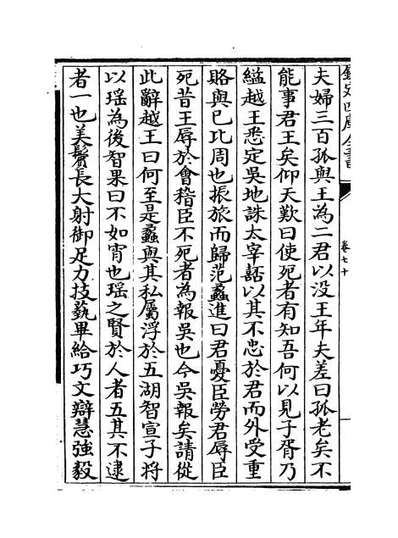 欽定四庫全書
卷七十
夫婦三百孤與王為二君以没王年夫差曰孤老矣不
能事君王矣仰天歎曰使死者有知吾何以見子胥乃
縊越王悉定吳地誅太宰嚭以其不忠於君而外受重
賂與已比周也振旅而歸范蠡進曰君憂臣勞君辱臣
死昔王辱於會稽臣不死者為報吳也今吳報矣請從
此辭越王曰何至是蠡與其私屬浮於五湖智宣子將
以瑶為後智果曰不如宵也瑶之賢於人者五其不逮
者一也美鬢長大射御足力技藝畢給巧文辯慧強毅